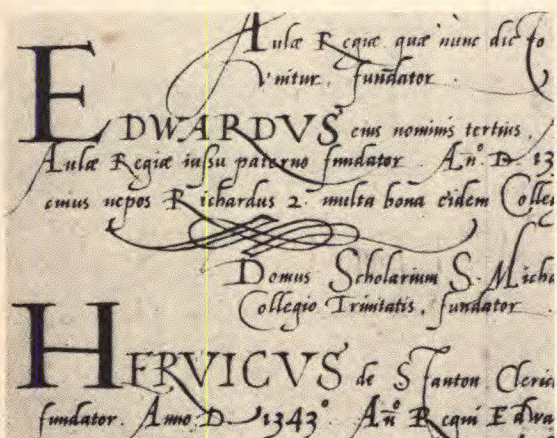 Aulæ Regiæ quæ nunc dic to
Vnitur, fundator.
EDWARDVS eius nominis tertius,
Aulæ Regiæ iussu paterno fundator. An̄o. D. 13
cuius nepos Richardus 2. multa bona eidem Colle
Domus Scholarium S. Micha
Collegio Trinitatis, fundator.
HERVICVS de Stanton Cleric
fundator. Anno. D. 1343° An̄o Regni Edwa